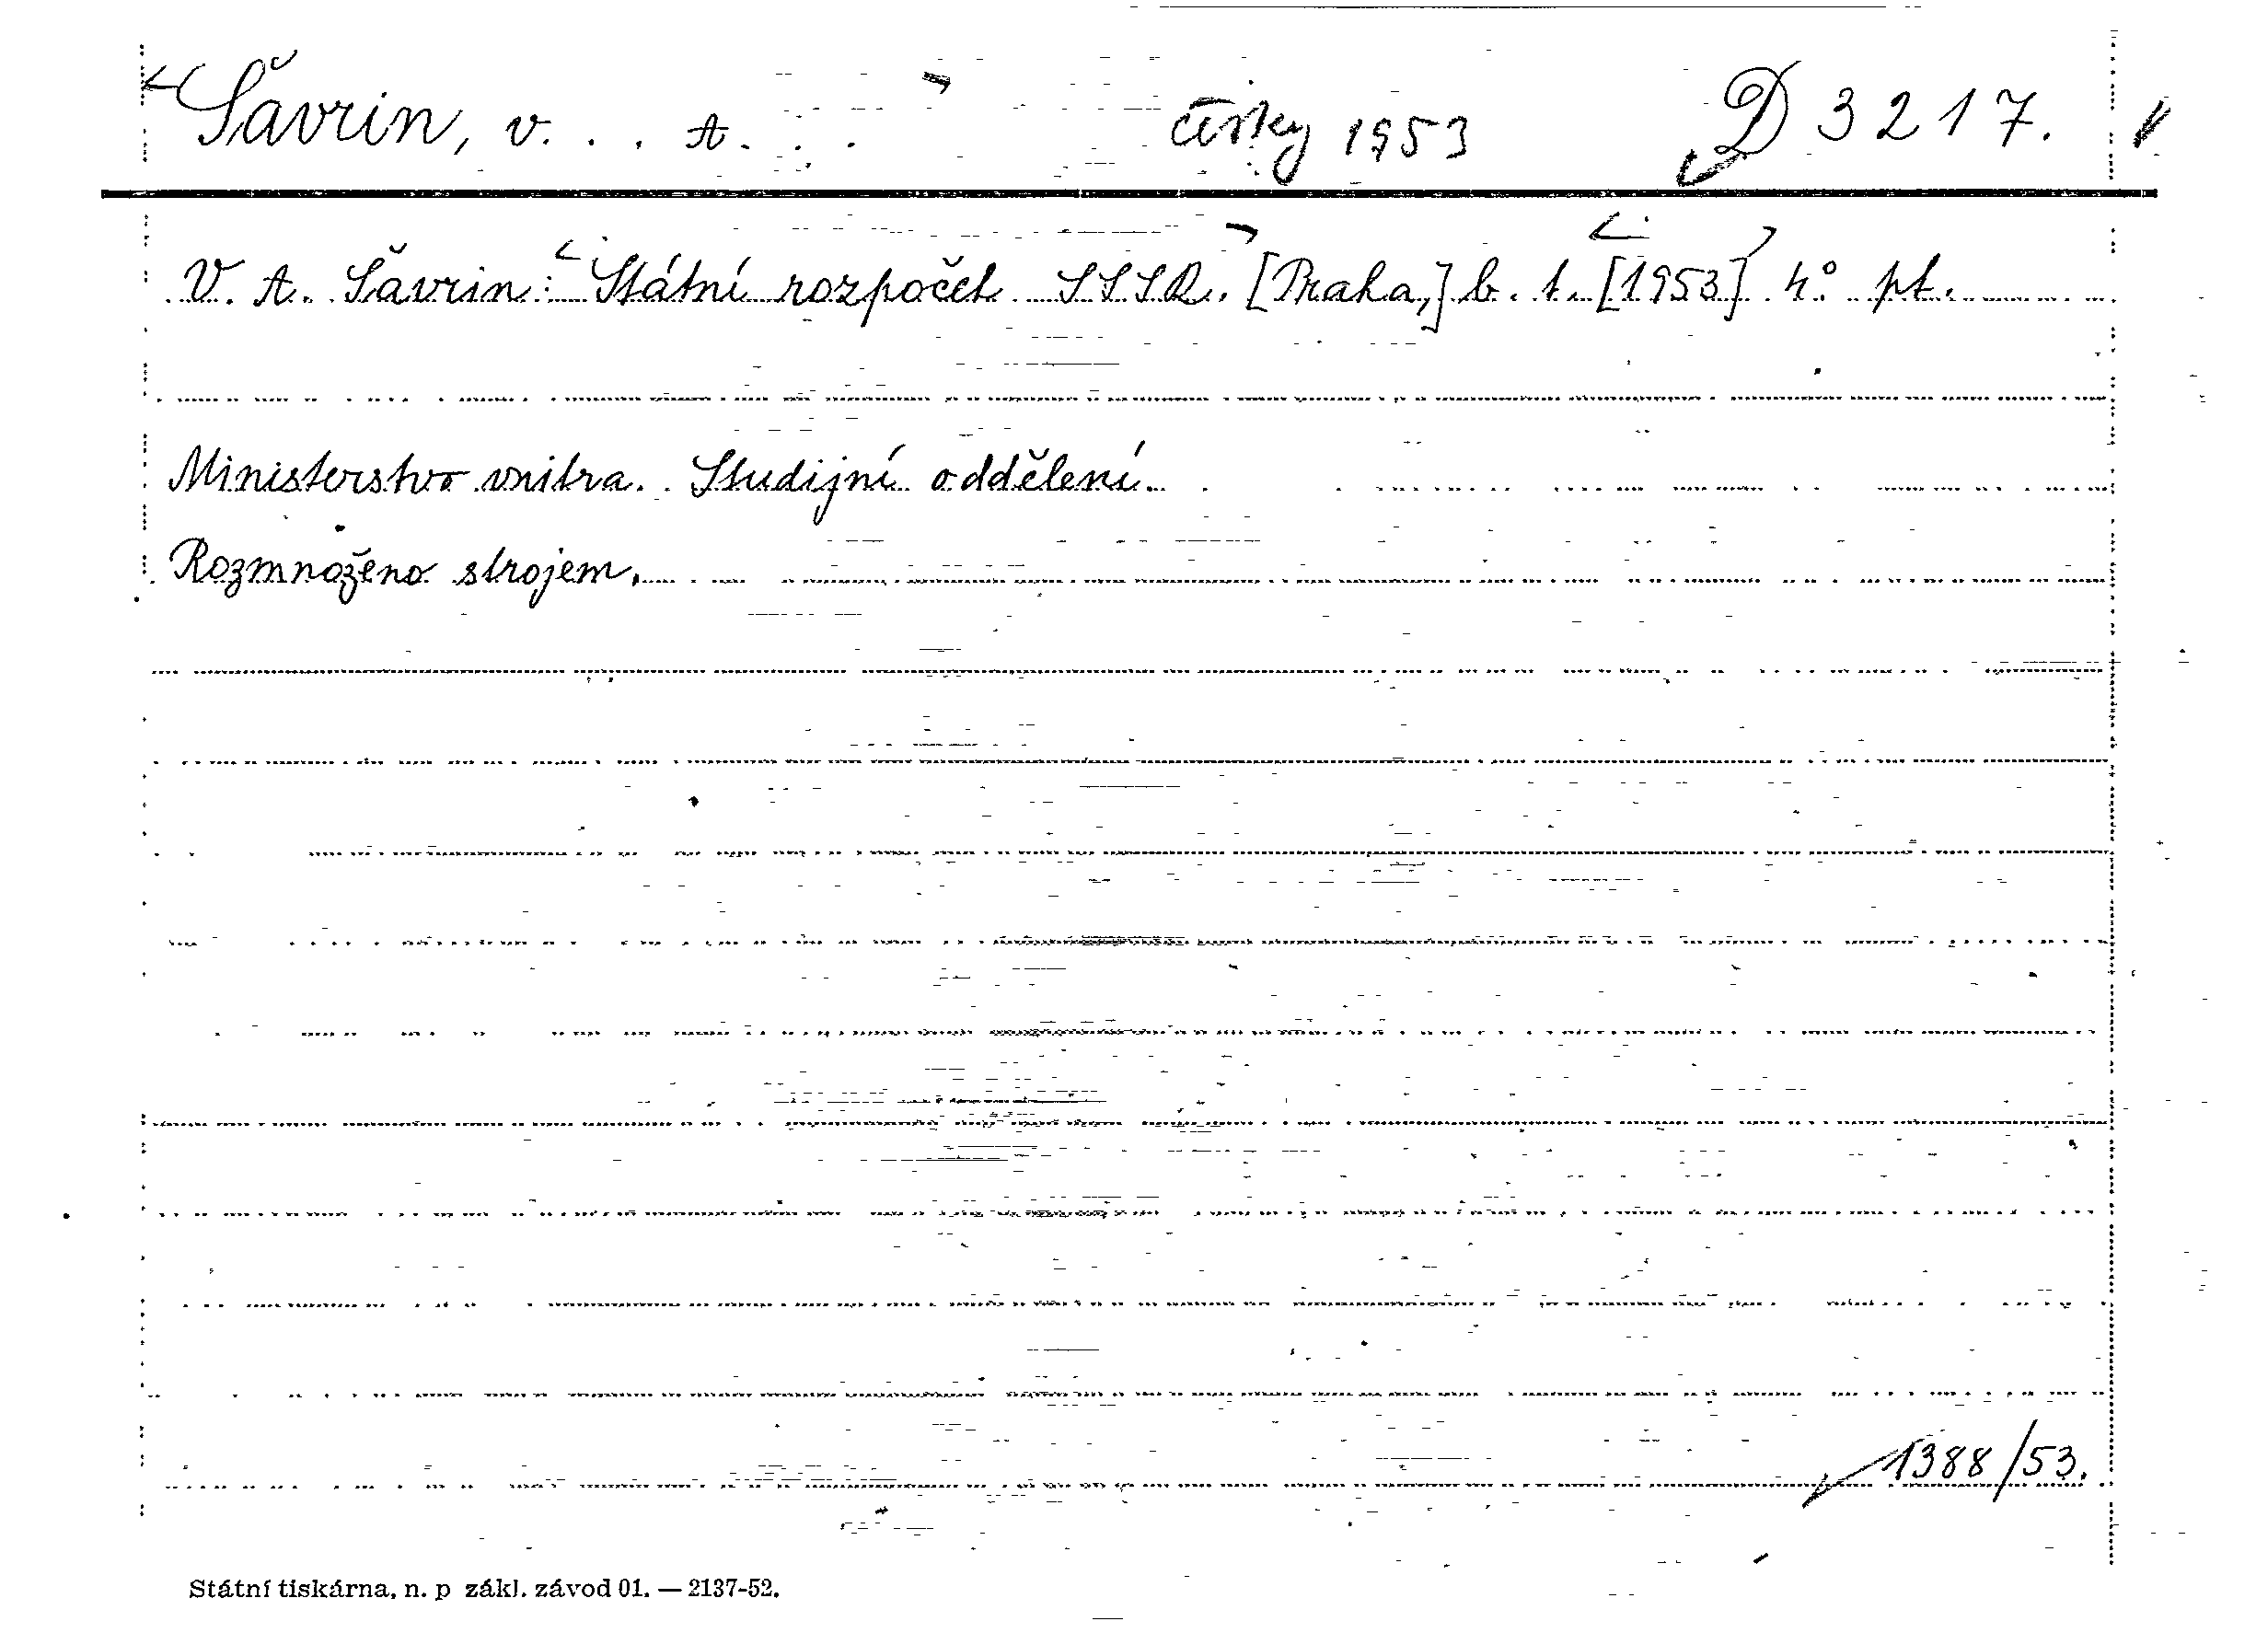 Šavrin, V. . . A. . . česky 1953 D 3217.
V. A. Šavrin: Státní rozpočet SSSR. [Praha,] b. t. [1953] 4° pt.
Ministerstvo vnitra. Studijní oddělení.
Rozmnoženo strojem.
1388/53.
Státní tiskárna, n. p zákl. závod 01. — 2137-52.